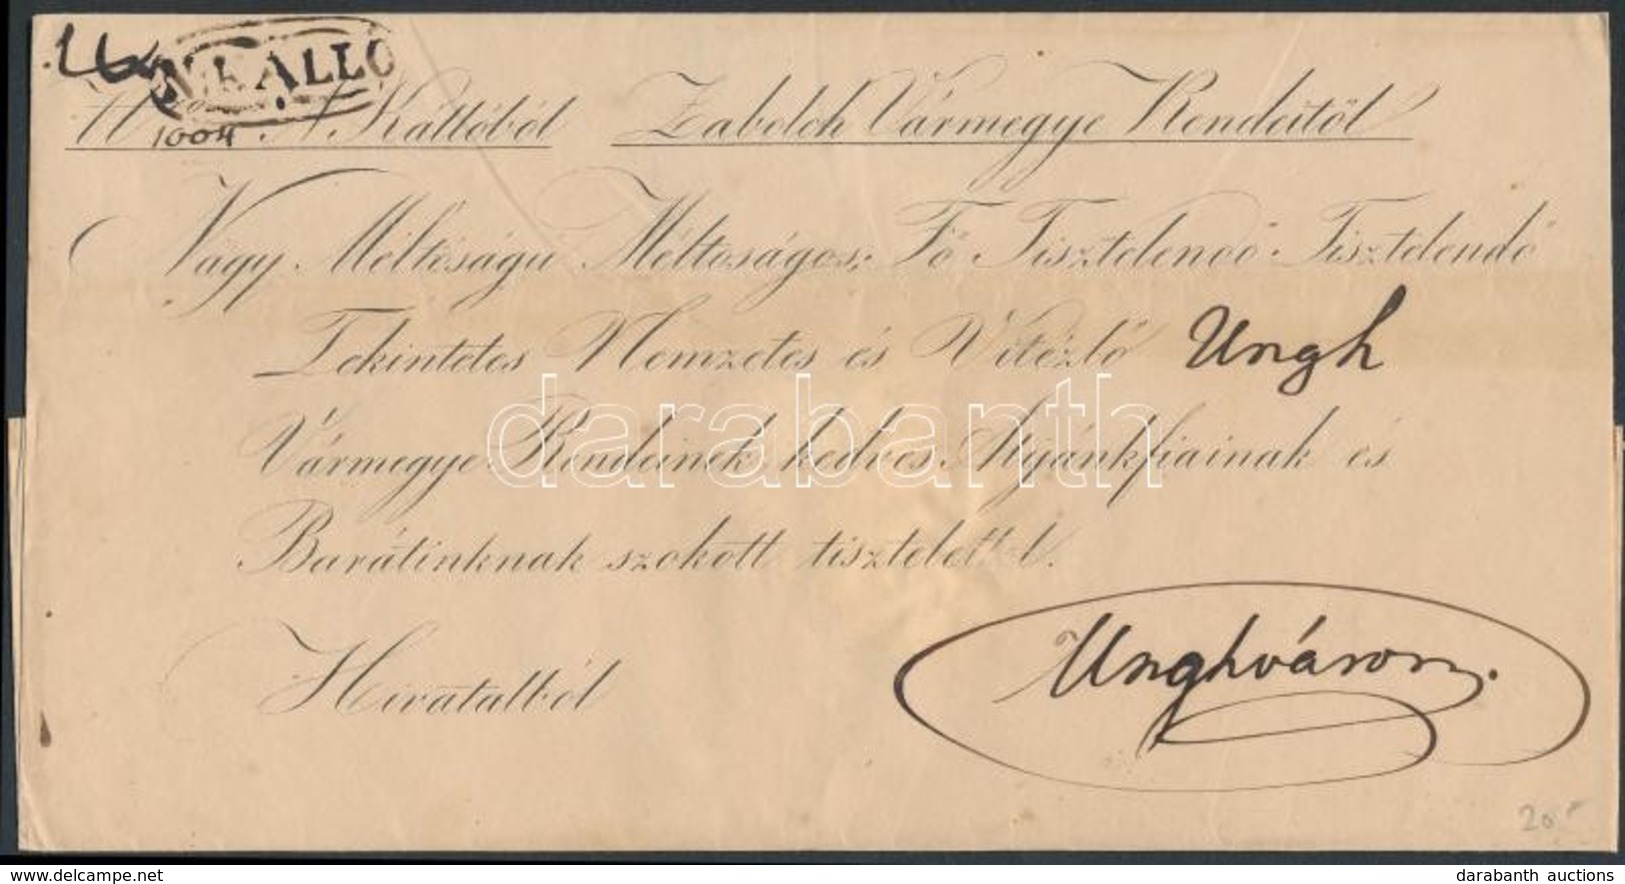 N.KÁLLÓ
1004. N. Kállóból Zabolch Vármegye Rendeitöl
Nagy Méltóságú Méltoságos, Fő Tisztelendő Tisztelendő
Tekintetes Nemzetes és Vitézlő Ungh
Vármegye Rendeinek kedves Atyánkfiainak és
Barátinknak szokott tisztelettel.
Hivatalból
Unghváron.
20.-
darabanth
www.delcampe.net
darabanth auctions